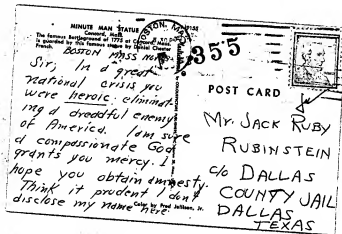 MINUTE MAN STATUE
Concord, Mass.
The famous Battleground of 1775 at Concord, Mass.
is guarded by this famous statue by Daniel Chester
French.
BOSTON MASS
Sir; In a great
national crisis you
were heroic eliminat
ing a dreadful enemy
of America. I am sure
a compassionate God
grants you mercy. I
hope you obtain amnesty.
Think it prudent I don't
disclose my name here
Color by Fred
BOSTON, MASS
355
POST CARD
Mr. JACK RUBY
RUBINSTEIN
c/o DALLAS
COUNTY JAIL
DALLAS
TEXAS